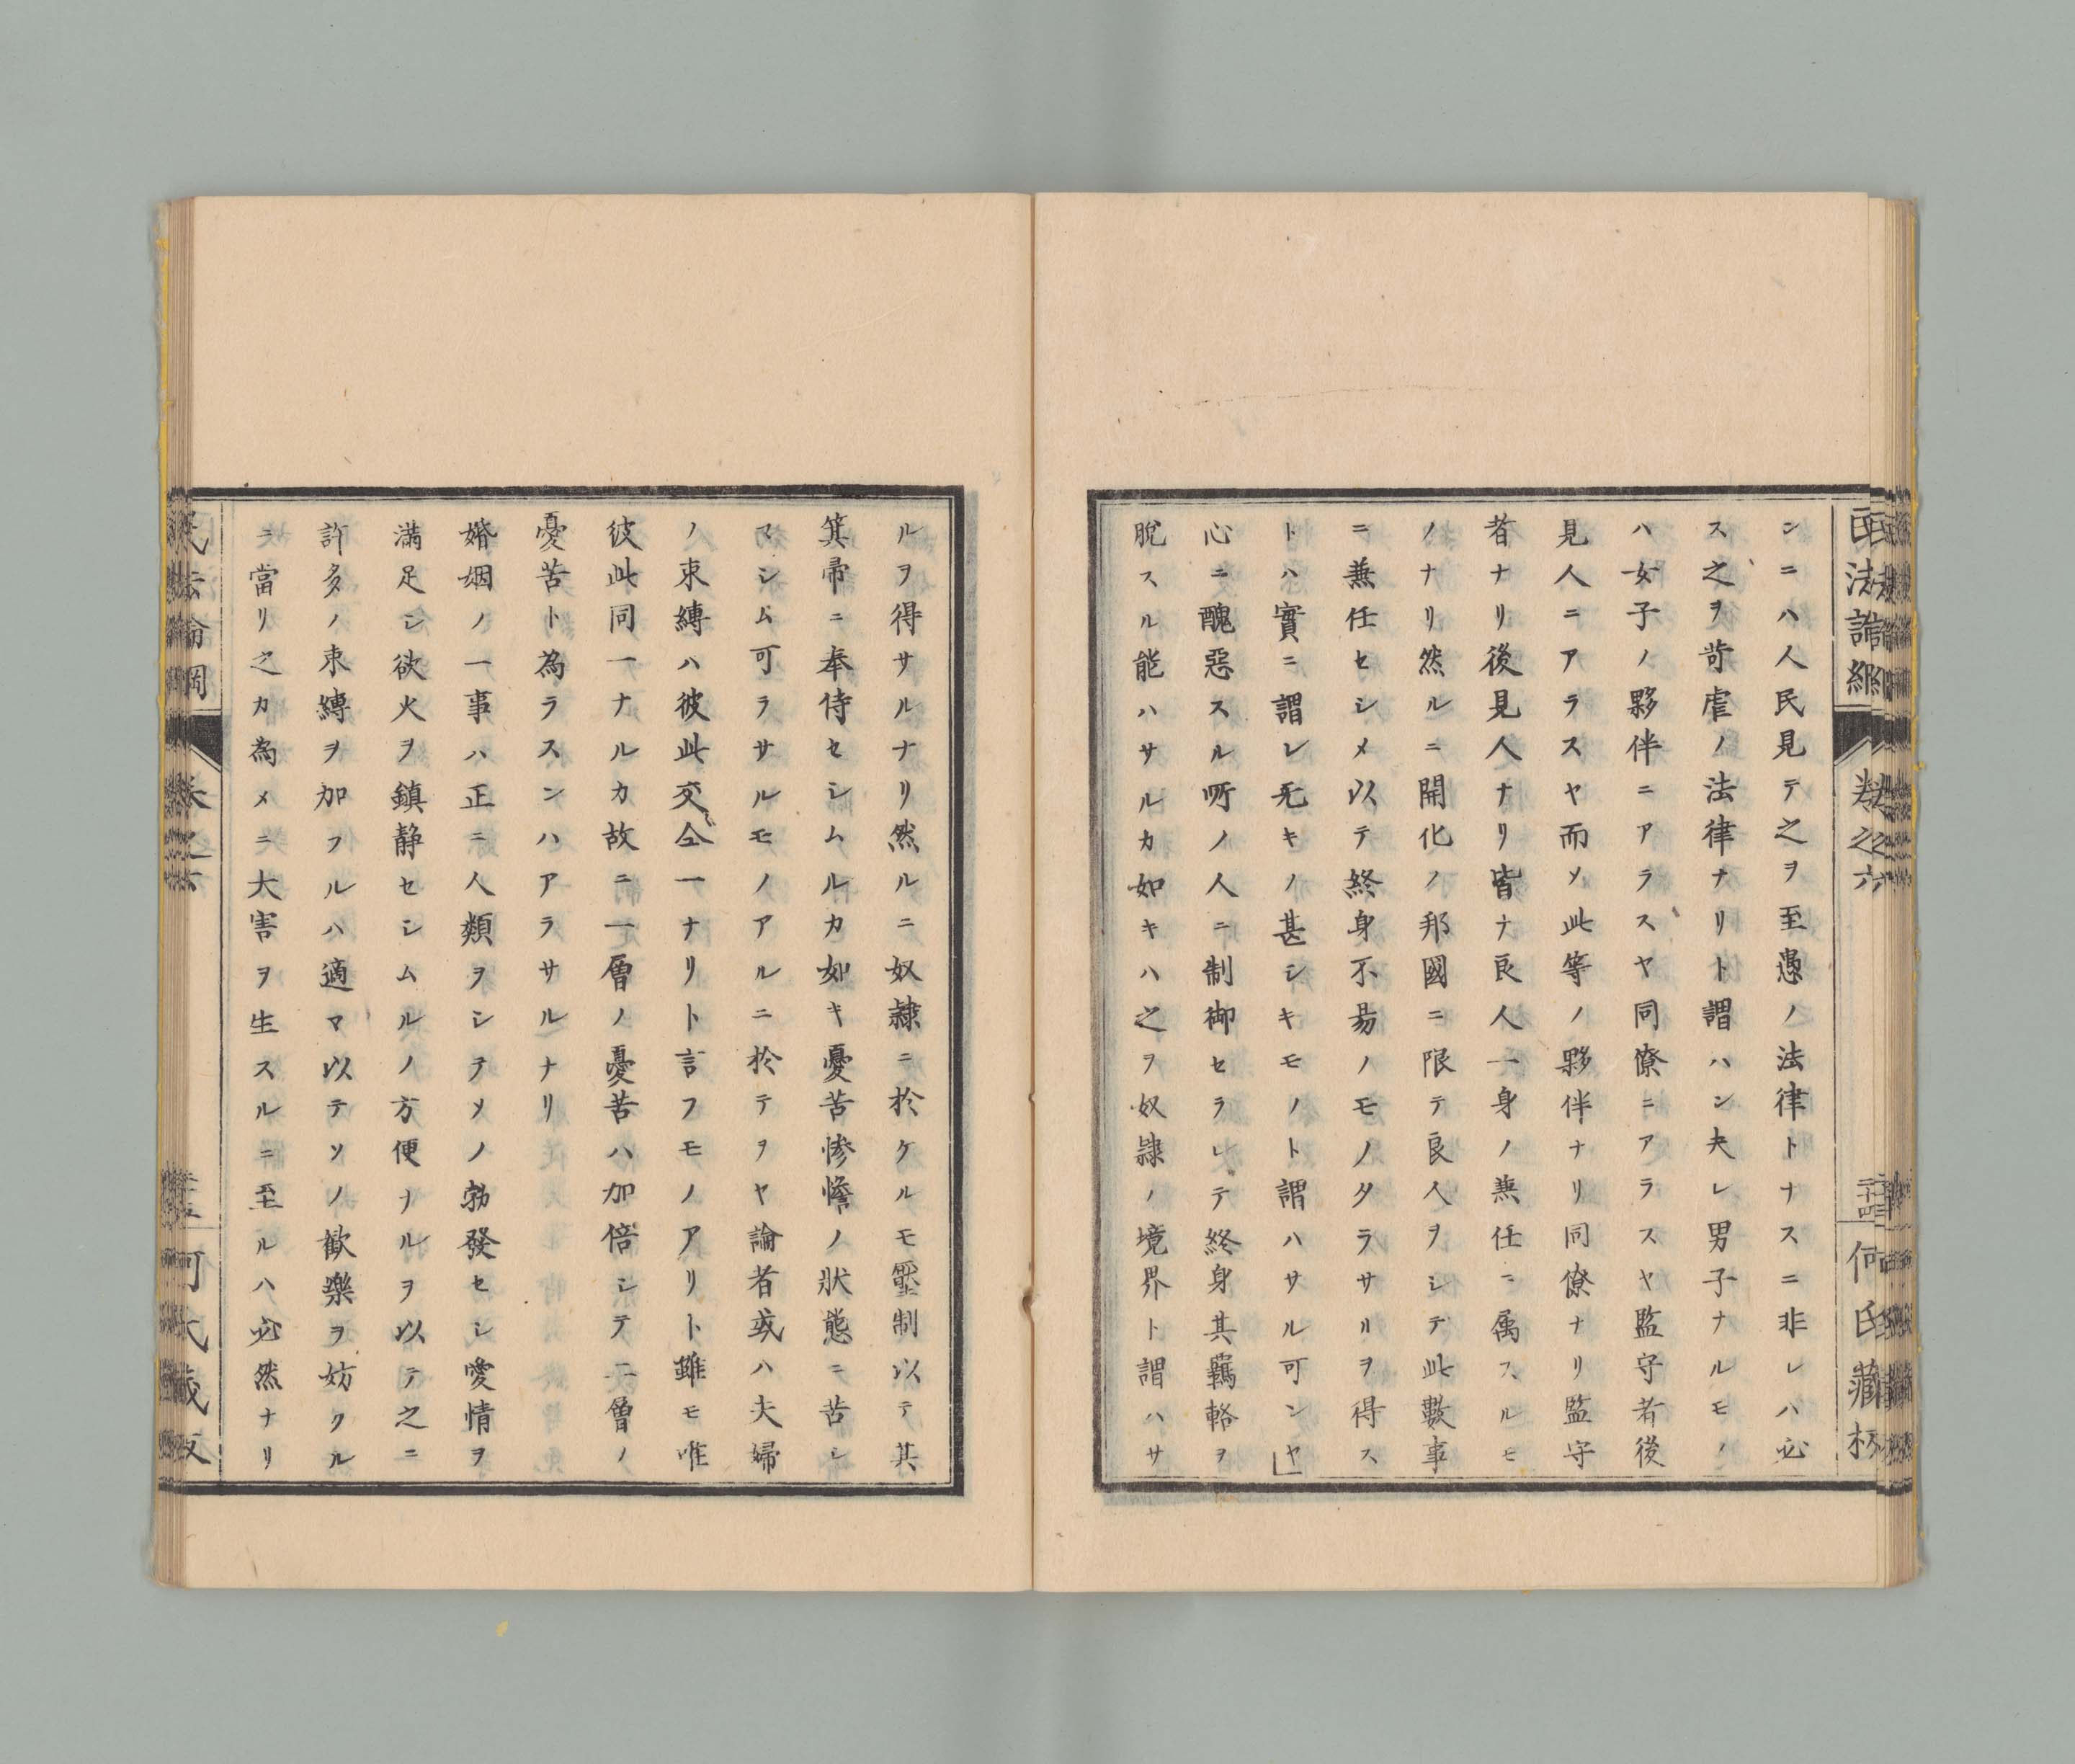 ンニハ人民見テ之ヲ至愚ノ法律トナスニ非レハ必
ス之ヲ苛虐ノ法律ナリト謂ハン夫レ男子ナルモノ
ハ女子ノ夥伴ニアラスヤ同僚ニアラスヤ監守者後
見人ニアラスヤ而メ此等ノ夥伴ナリ同僚ナリ監守
者ナリ後見人ナリ皆ナ良人一身ノ兼任ニ属スルモ
ノナリ然ルニ開化ノ邦國ニ限テ良人ヲシテ此數事
ニ兼任セシメ以テ終身不易ノモノタラサルヲ得ス
トハ實ニ謂レ无キノ甚シキモノト謂ハサル可ンヤ」
心ニ醜惡スル所ノ人ニ制御セラレテ終身其羈輅ヲ
脫スル能ハサルカ如キハ之ヲ奴隷ノ境界ト謂ハサ
ルヲ得サルナリ然ルニ奴隷ニ於ケルモ壓制以テ其
箕帚ニ奉侍セシムルカ如キ憂苦惨憺ノ狀態ニ苦シ
マシム可ラサルモノアルニ於テヲヤ論者或ハ夫婦
ノ束縛ハ彼此交〻仝一ナリト言フモノアリト雖モ唯
彼此同一ナルカ故ニ一層ノ憂苦ハ加倍シテ二層ノ
憂苦ト為ラスンハアラサルナリ
婚姻ノ一事ハ正ニ人類ヲシテメノ勃發セシ愛情ヲ
滿足シ欲火ヲ鎮静セシムルノ方便ナルヲ以テ之ニ
許多ノ束縛ヲ加フルハ適マ以テソノ歓樂ヲ妨クル
ニ當リ之カ為メニ大害ヲ生スルニ至ルハ必然ナリ
民法論綱
卷之六
何氏藏板